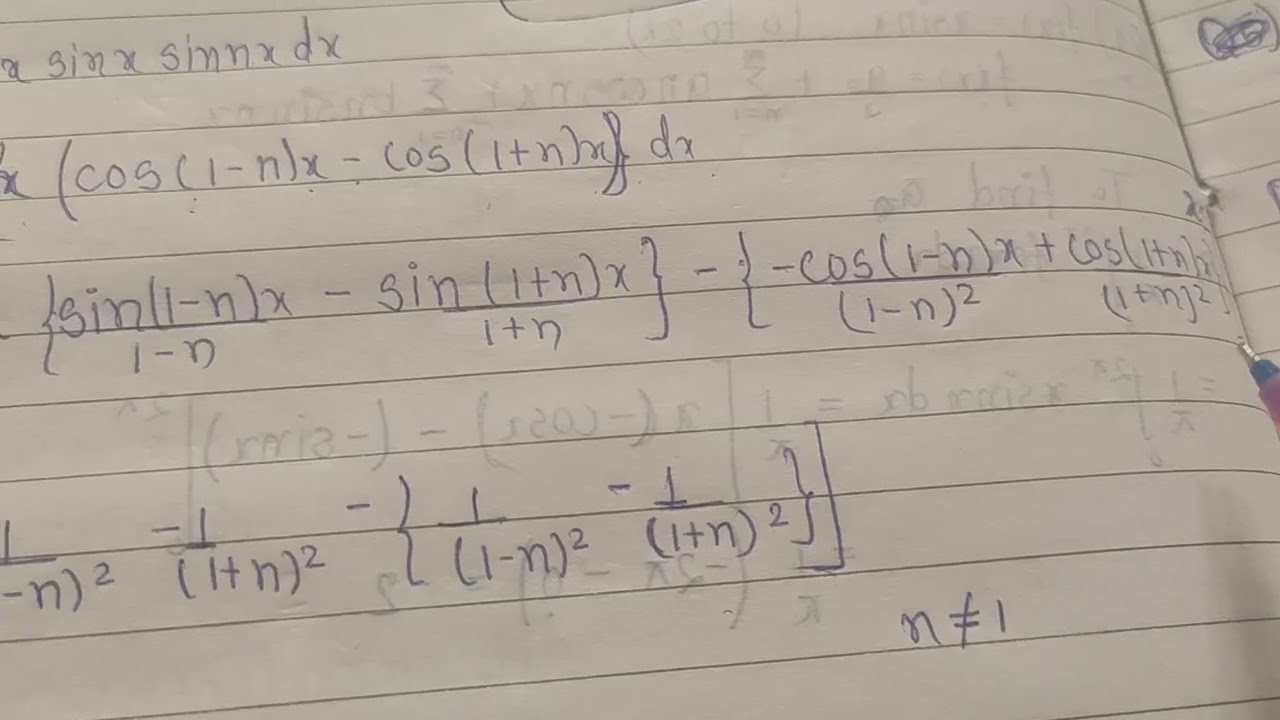 x sinx sinnx dx
x (cos(1-n)x - cos(1+n)x)} dx
{sin(1-n)x/1-n - sin(1+n)x/1+n} - {-cos(1-n)x/(1-n)² + cos(1+n)x/(1+n)²
1/-n)² -1/(1+n)² - {1/(1-n)² - 1/(1+n)²}]
n ≠ 1